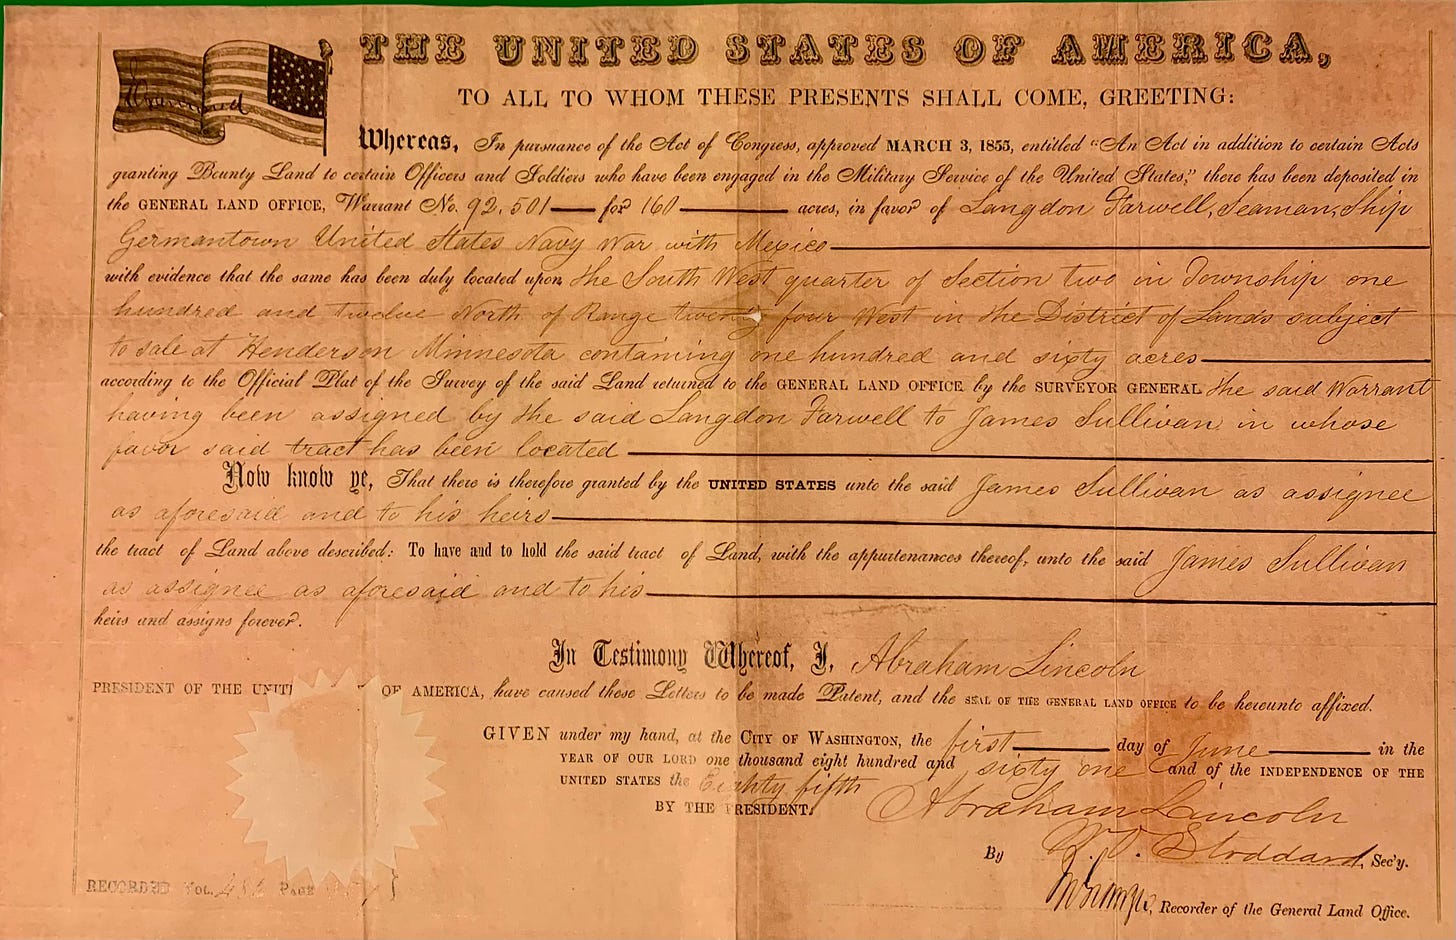 THE UNITED STATES OF AMERICA,
TO ALL TO WHOM THESE PRESENTS SHALL COME, GREETING:
Whereas, In pursuance of the Act of Congress, approved MARCH 3, 1855, entitled "An Act in addition to certain Acts
granting Bounty Land to certain Officers and Soldiers who have been engaged in the Military Service of the United States," there has been deposited in
the GENERAL LAND OFFICE, Warrant No. 92,501 for 160 acres, in favor of Langdon Farwell, Seaman, Ship
Germantown United States Navy War with Mexico
with evidence that the same has been duly located upon the South West quarter of Section two in Township one
hundred and twelve North of Range twenty four West in the District of Lands subject
to sale at Henderson Minnesota containing one hundred and sixty acres
according to the Official Plat of the Survey of the said Land returned to the GENERAL LAND OFFICE by the SURVEYOR GENERAL the said Warrant
having been assigned by the said Langdon Farwell to James Sullivan in whose
favor said tract has been located
Now know ye, That there is therefore granted by the UNITED STATES unto the said James Sullivan as assignee
as aforesaid and to his heirs
the tract of Land above described: To have and to hold the said tract of Land, with the appurtenances thereof, unto the said James Sullivan
as assignee as aforesaid and to his
heirs and assigns forever.
In Testimony Whereof, I, Abraham Lincoln
PRESIDENT OF THE UNIT OF AMERICA, have caused these Letters to be made Patent, and the SEAL OF THE GENERAL LAND OFFICE to be hereunto affixed.
GIVEN under my hand, at the CITY OF WASHINGTON, the first day of June in the
YEAR OF OUR LORD one thousand eight hundred and sixty one and of the INDEPENDENCE OF THE
UNITED STATES the Eighty fifth
BY THE PRESIDENT: Abraham Lincoln
By W. O. Stoddard, Sec'y.
, Recorder of the General Land Office.
RECORDED Vol. PAGE